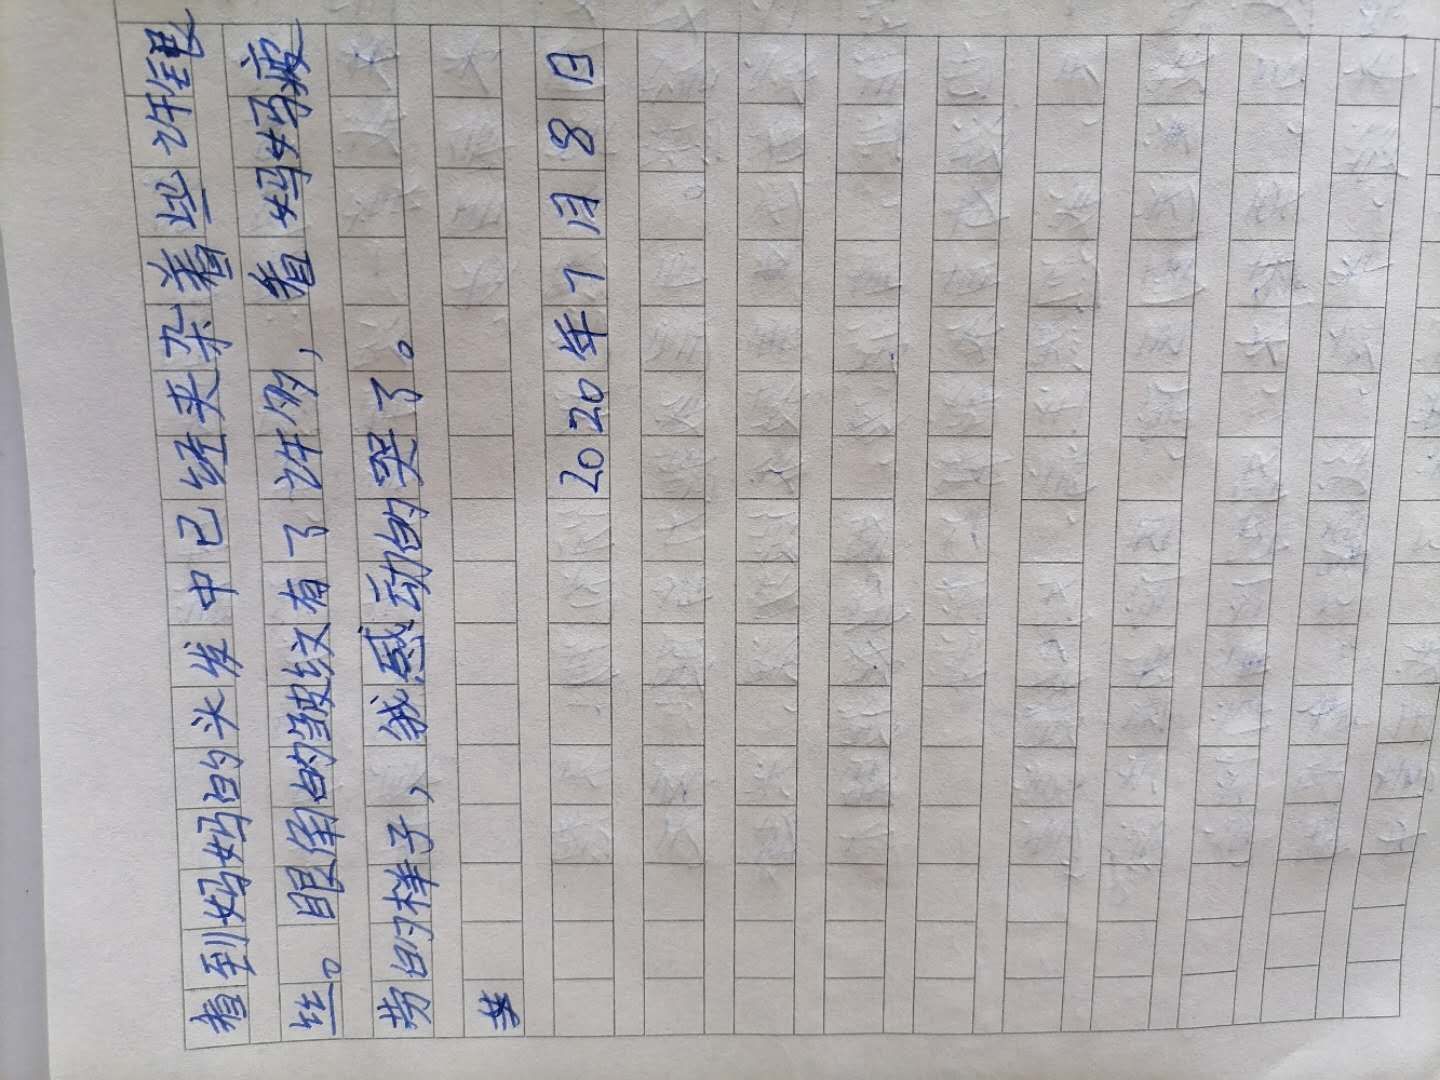 看到妈妈的头发中已经夹杂着些许银
丝。眼角的皱纹有了许多，看妈妈疲
劳的样子，我感动的哭了。
2020年1月8日